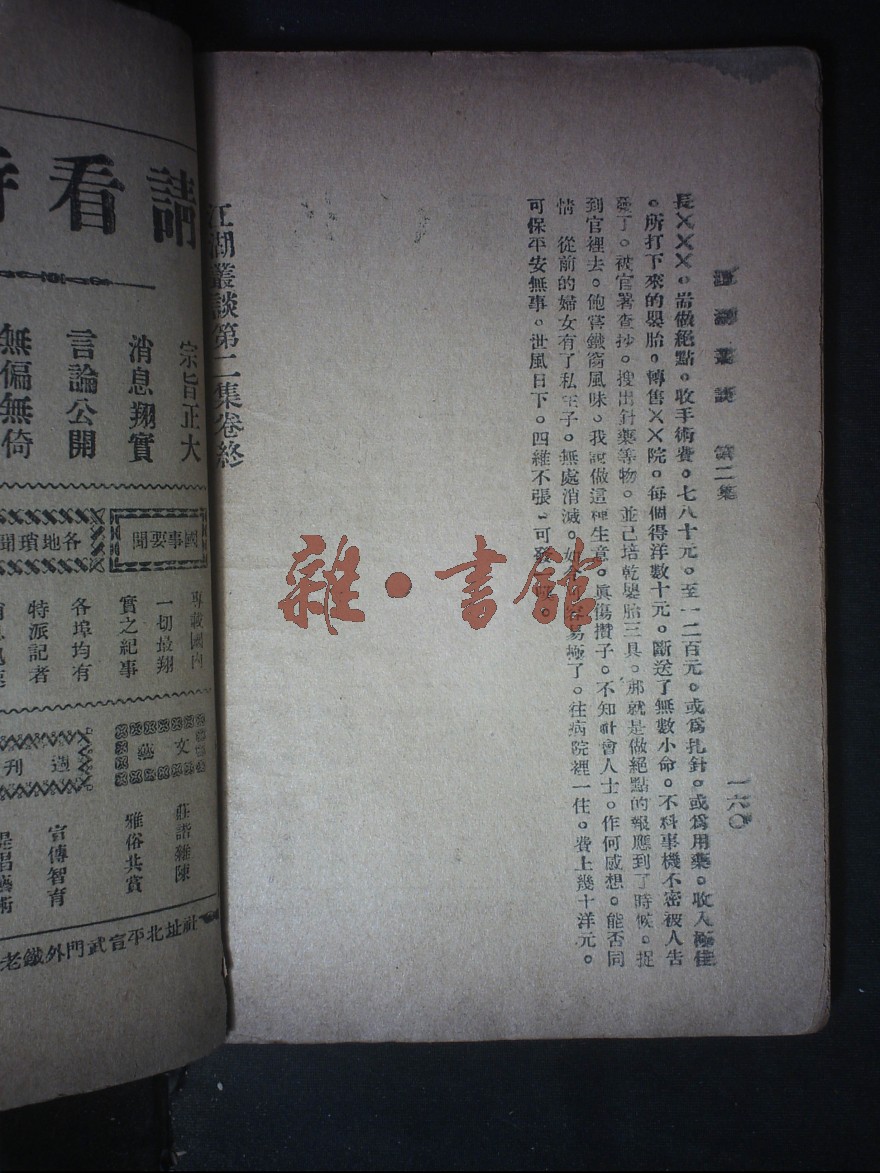 江湖叢談　第二集
一六〇
長×××。耑做絕點。收手術費。七八十元。至一二百元。或爲扎針。或爲用藥。收入極佳
。所打下來的嬰胎。轉售××院。每個得洋數十元。斷送了無數小命。不料事機不密被人告
發了。被官署查抄。搜出針藥等物。並已培乾嬰胎三具。那就是做絕點的報應到了時候。捉
到官裡去。飽嘗鐵窗風味。我說做這種生意。眞傷攢子。不知社會人士。作何感想。能否同
情 從前的婦女有了私生子。無處消滅。如今易極了。往病院裡一住。費上幾十洋元。
可保平安無事。世風日下。四維不張。可發
江湖叢談第二集卷終
雜·書館
請看
宗旨正大
消息翔實
言論公開
無偏無倚
國事要聞
專載國內
一切最翔
實之紀事
各地瑣聞
各埠均有
特派記者
文藝
莊諧雜陳
雅俗共賞
週刊
宣傳智育
提倡藝術
社址北平宣武門外鐵老